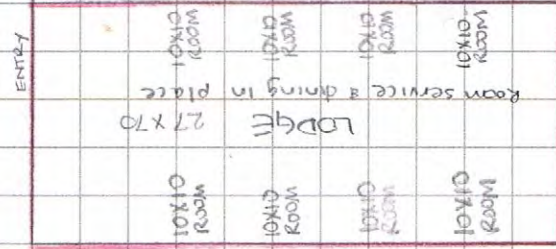 ENTRY
10X10
ROOM
10X10
ROOM
10X10
ROOM
10X10
ROOM
Room service & dining in place
LODGE 27 X 70
10X10
ROOM
10X10
ROOM
10X10
ROOM
10X10
ROOM